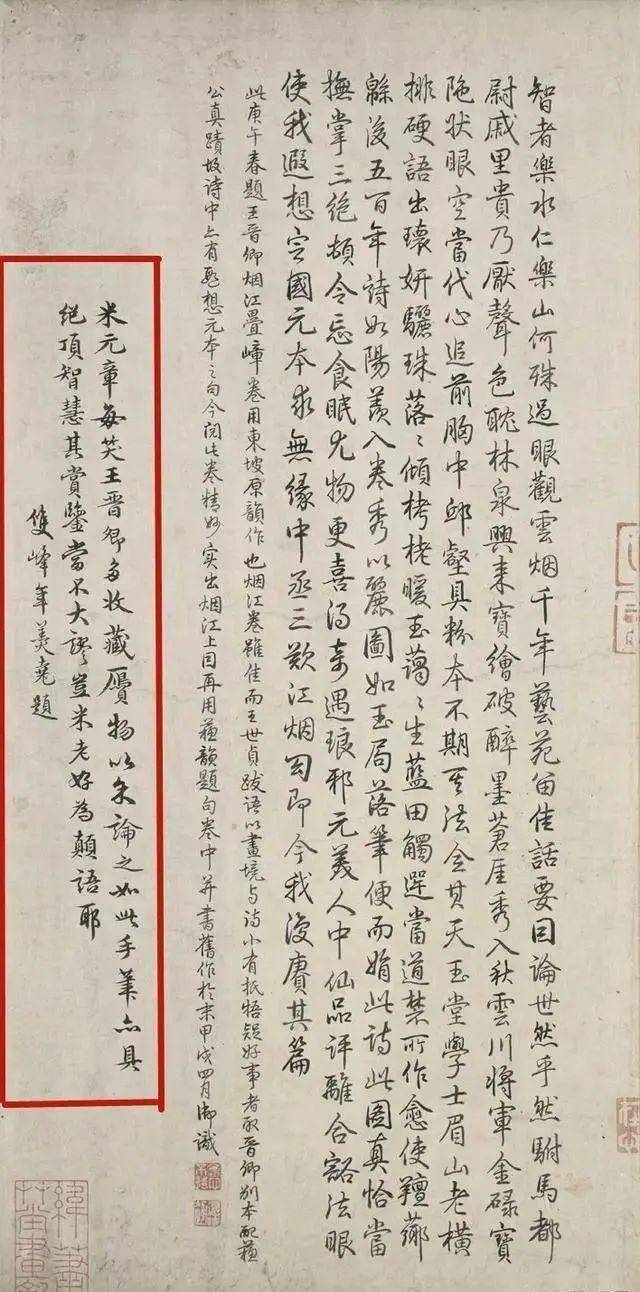 智者樂水仁樂山何殊過眼觀雲烟千年藝苑留佳話要因論世然乎然駙馬都
尉戚里貴乃厭聲色耽林泉興來寶繪破醉墨蒼厓秀入秋雲川將軍金碌寶
陁狀眼空當代心追前胸中邱壑具粉本不期法合其天玉堂學士眉山老橫
排硬語出瓌妍驪珠落〻傾栲栳暖玉藹〻生藍田觸邏當道禁所作愈使羶薌
緜後五百年詩如陽羨入卷秀以麗圖如玉局落筆便而娟此詩此圖真恰當
撫掌三絕頓令忘食眠尤物更喜得奇遇琅邪元美人中仙品評離合豁法眼
使我遐想定國元本求無緣中丞三歎江烟句即今我復賡其篇
此庚午春題王晉卿烟江疊嶂卷用東坡原韻作也烟江卷雖佳而王世貞跋語以畫境与詩小有抵牾疑好事者取晉卿別本配蘇
公真蹟坡詩中亦有遐想元本之句今閱此卷精妙實出烟江上因再用蘇韻題句卷中并書舊作於末甲戌四月御識
米元章每笑王晉卿多收藏贋物以余論之如此手筆亦具
絕頂智慧其賞鑒當不大謬豈米老好為顛語耶
雙峰年羹堯題